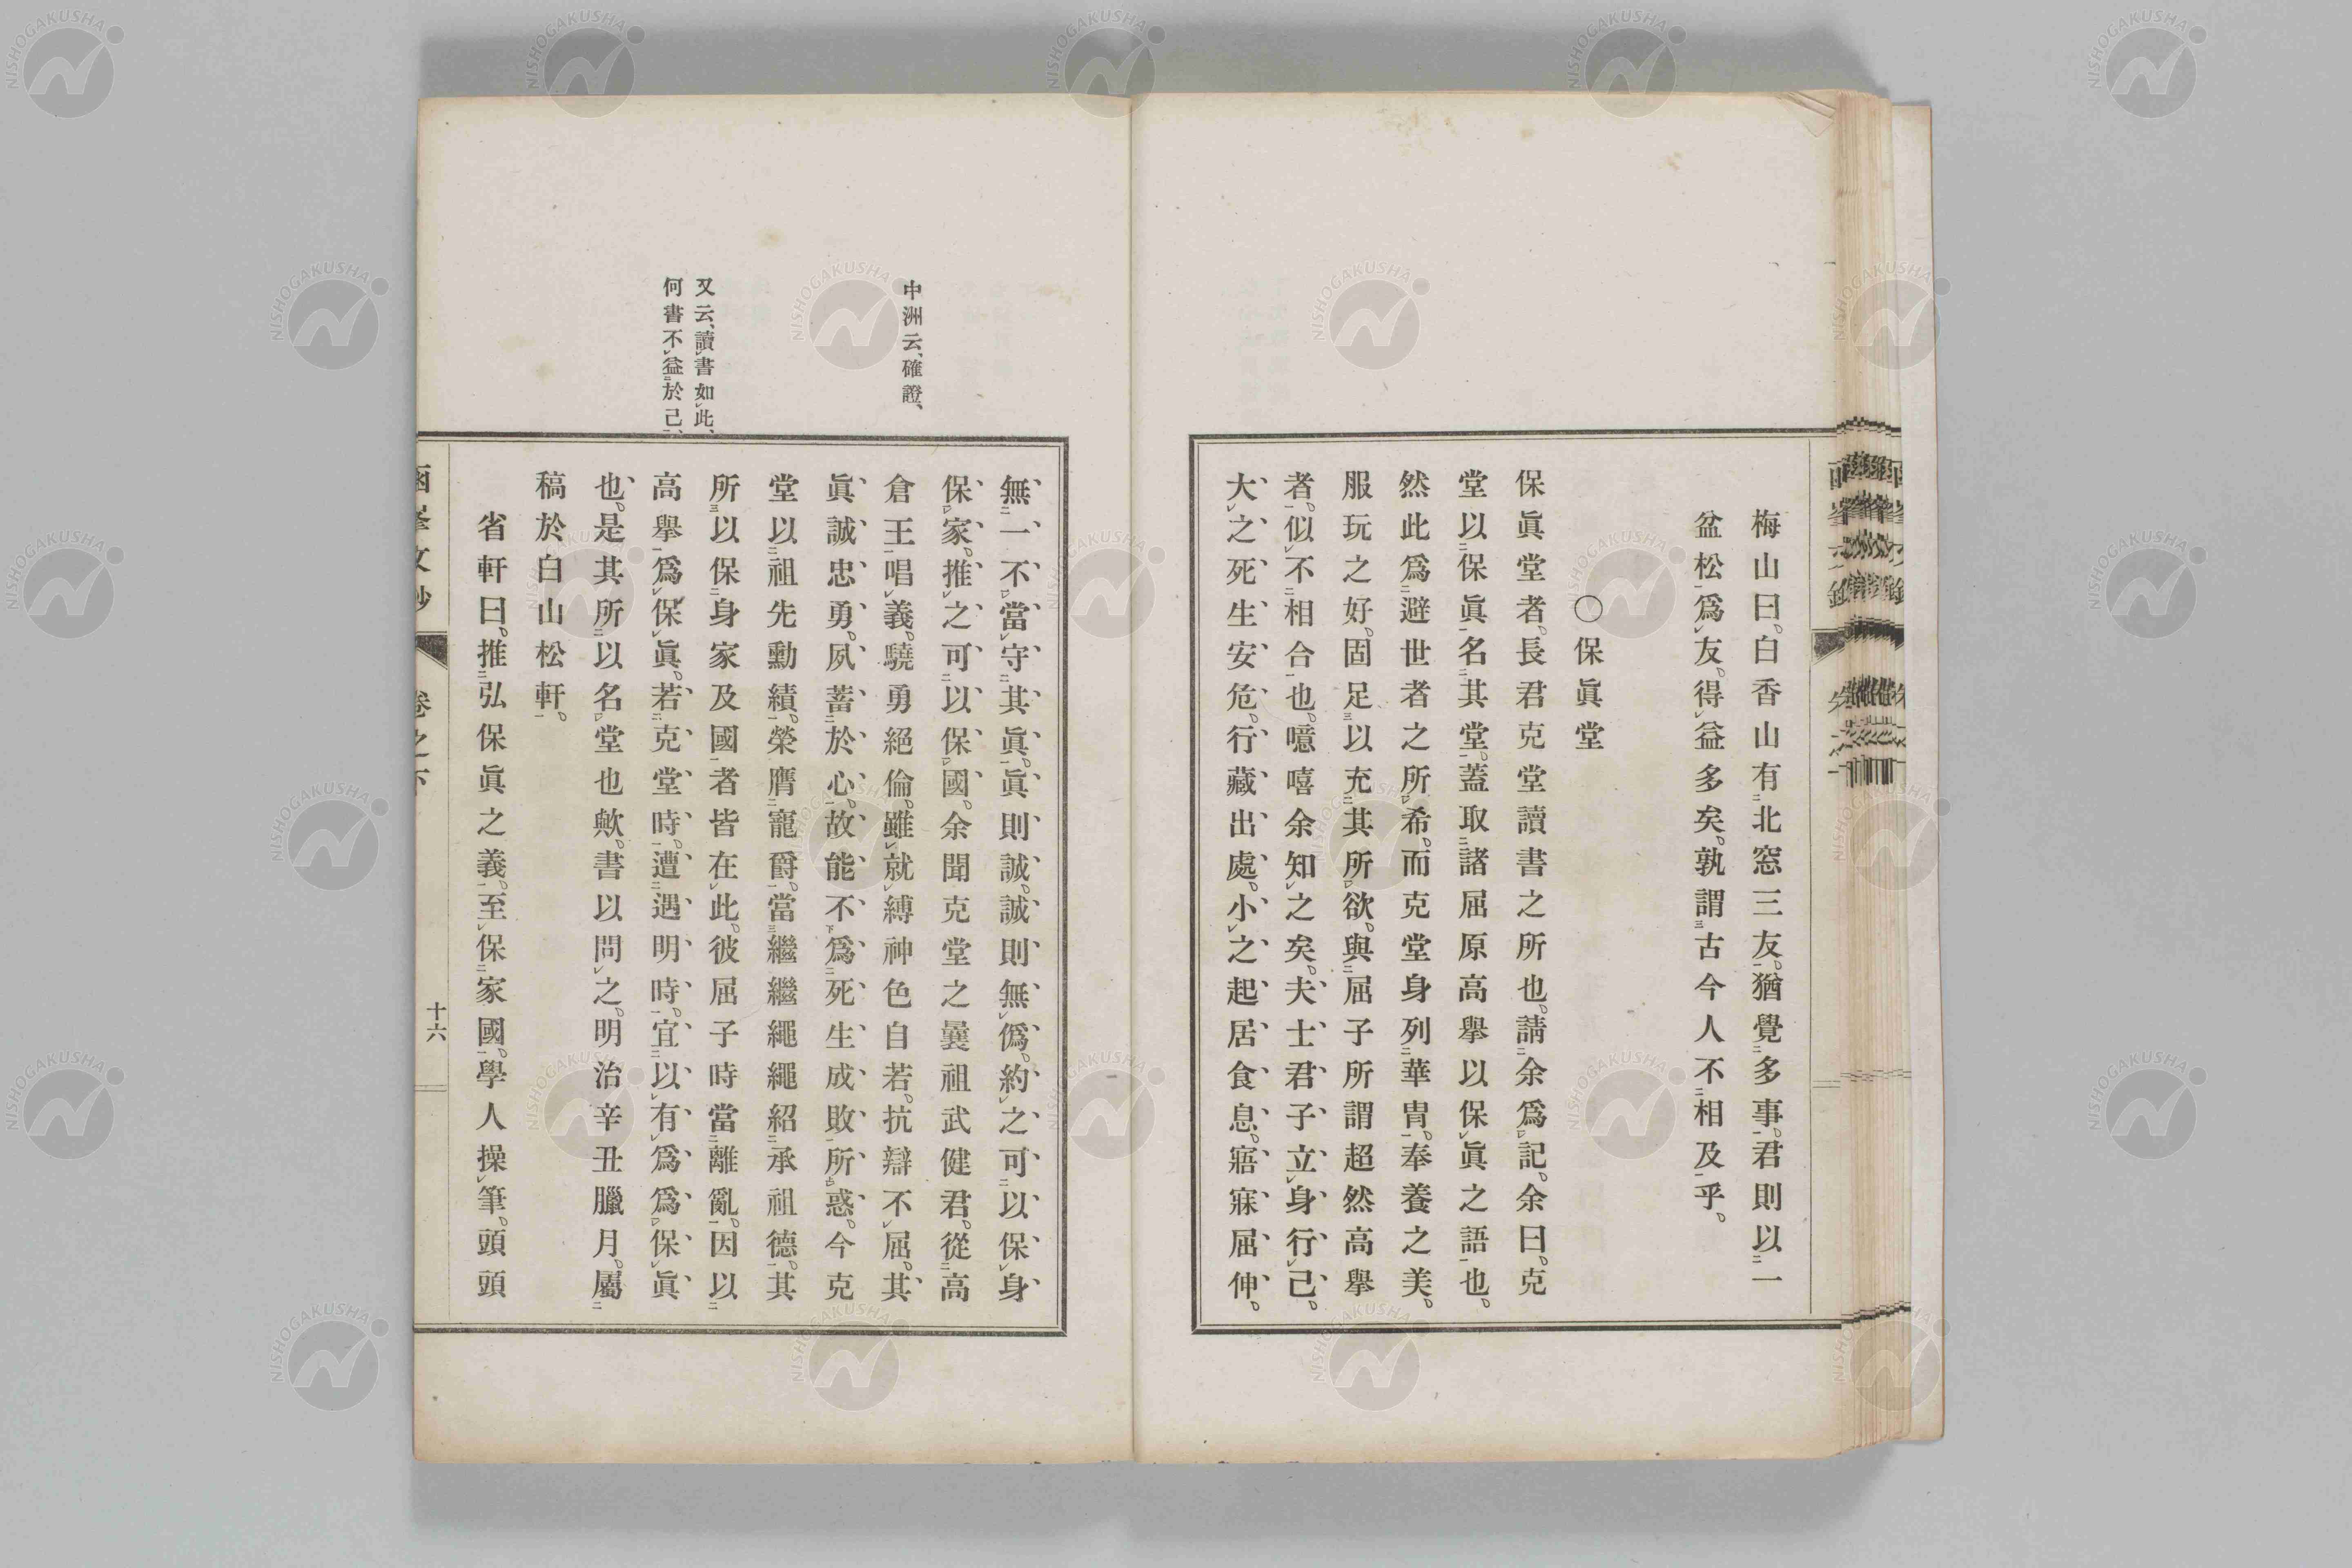 梅山曰。白香山有北窓三友。猶覺多事。君則以一
盆松爲友。得益多矣。孰謂古今人不相及乎。
〇保眞堂
保眞堂者。長君克堂讀書之所也。請余爲記。余曰。克
堂以保眞名其堂。蓋取諸屈原高擧以保眞之語也。
然此爲避世者之所希。而克堂身列華胄。奉養之美。
服玩之好。固足以充其所欲。與屈子所謂超然高擧
者。似不相合也。噫嘻余知之矣。夫士君子立身行己。
大之死生安危。行藏出處。小之起居食息。寤寐屈伸。
無一不當守其眞。眞則誠。誠則無僞。約之可以保身
保家。推之可以保國。余聞克堂之曩祖武健君。從高
倉王唱義。驍勇絕倫。雖就縛神色自若。抗辯不屈。其
眞誠忠勇。夙蓄於心。故能不爲死生成敗所惑。今克
堂以祖先勳績。榮膺寵爵。當繼繼繩繩紹承祖德。其
所以保身家及國者皆在此。彼屈子時當離亂。因以
高擧爲保眞。若克堂時。遭遇明時。宜以有爲爲保眞
也。是其所以名堂也歟。書以問之。明治辛丑臘月。屬
稿於白山松軒。
省軒曰。推弘保眞之義。至保家國。學人操筆。頭頭
中洲云、確證、
又云、讀書如此、
何書不益於己、
卷之下
十六
NISHOGAKUSHA